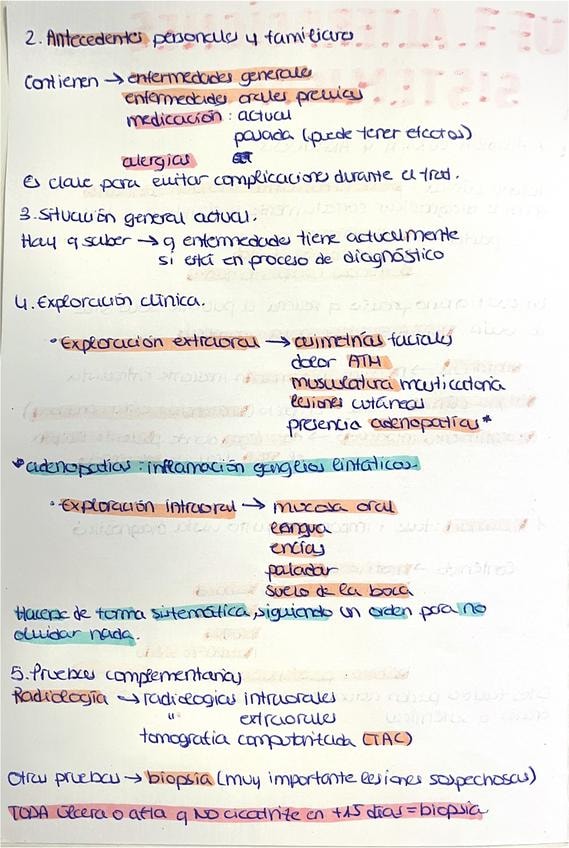 2. Antecedentes personales y familiares
Contienen → enfermedades generales
enfermedades orales previas
medicación : actual
pasada (puede tener efectos)
alergias
Es clave para evitar complicaciones durante el trat.
3. Situación general actual.
Hay q saber → q enfermedades tiene actualmente
si está en proceso de diagnóstico
4. Exploración clínica.
· Exploración extraoral → asimetrías faciales
dolor ATM
musculatura masticatoria
lesiones cutáneas
presencia adenopatías*
*adenopatías : inflamación ganglios linfáticos.
· Exploración intraoral → mucosa oral
lengua
encías
paladar
suelo de la boca
Hacerse de forma sistemática, siguiendo un orden para no
olvidar nada.
5. Pruebas complementarias
Radiología → radiologías intraorales
" extraorales
tomografía computarizada (TAC)
Otras pruebas → biopsia (muy importante lesiones sospechosas)
TODA úlcera o afta q NO cicatrize en +15 días = biopsia